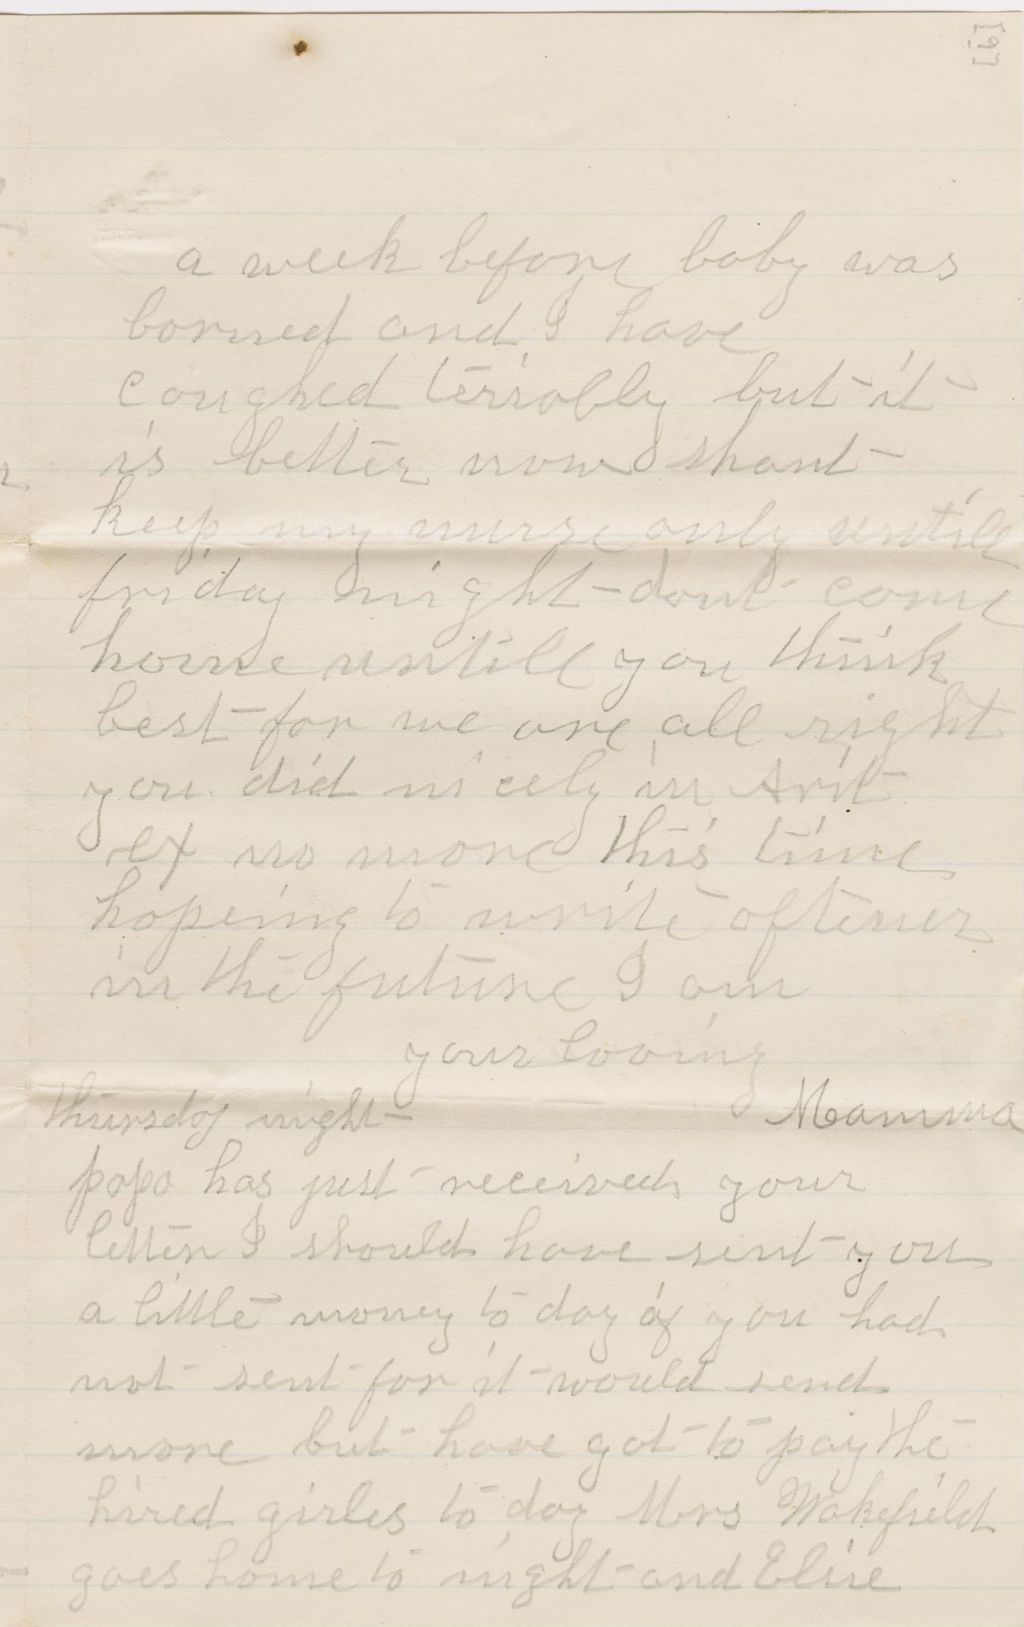 [6]
a week before baby was
borned and I have
coughed terriobly but it
is better now shant
keep my nurse only untill
friday night dont come
home untill you think
best for we are all right
you did nicely in Arit
ex no more this time
hopeing to write oftener
in the future I am
your loving
Mamma
thursday night
papa has just received your
letter I should have sent you
a little money to day if you had
not sent for it would send
more but have got to pay the
hired girles to day Mrs Wakefield
goes home to night and